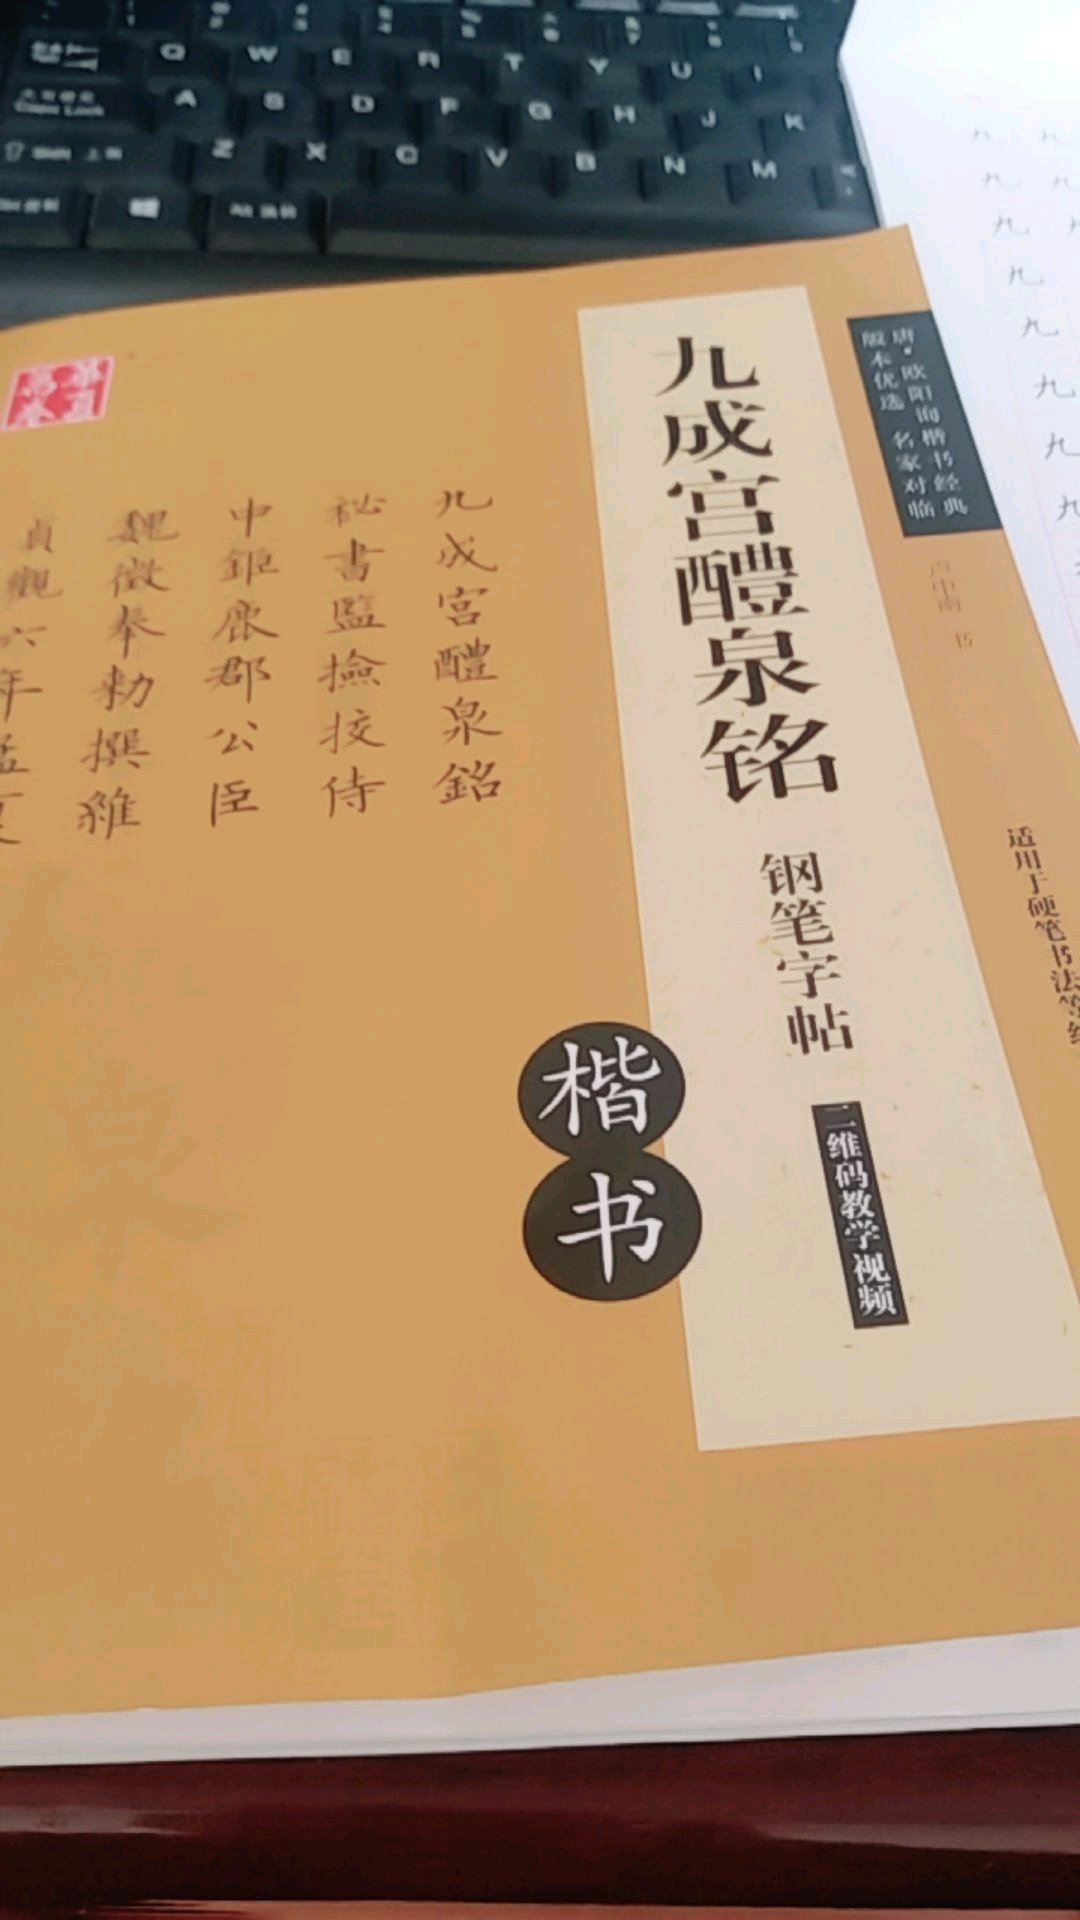 Q W E R T Y U I
A S D F G H J K
Caps Lock
Z X C V B N M
Shift
九成宫醴泉铭
钢笔字帖
二维码教学视频
楷书
唐·欧阳询楷书经典
版本优选 名家对临
卢中南 书
适用于硬笔书法等
九成宫醴泉銘
祕書監撿挍侍
中鉅鹿郡公臣
魏徵奉勅撰維
貞觀六年孟夏
九 九
九 九
九
九
九
九
九
九